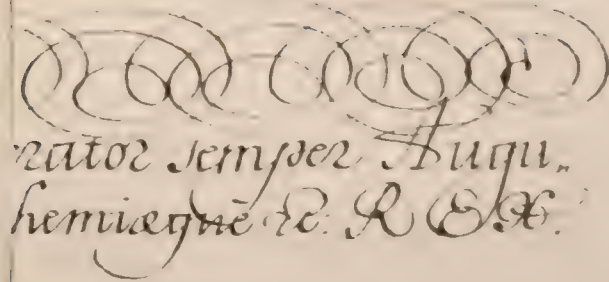 rator semper Augu„
hemiæquè &c. R E X.